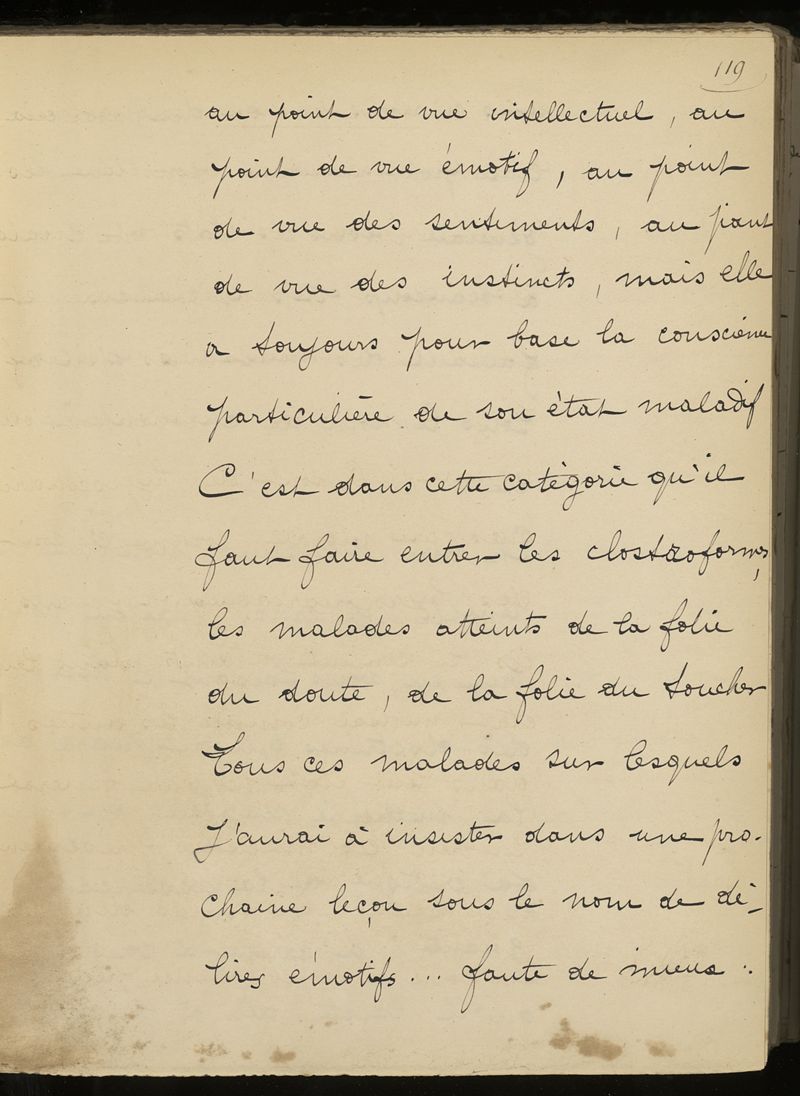 119
au point de vue intellectuel, au
point de vue émotif, au point
de vue des sentiments, au point
de vue des instincts, mais elle
a toujours pour base la conscience
particulière de son état maladif
C'est dans cette catégorie qu'il
faut faire entrer les clostroformes,
les malades atteints de la folie
du doute, de la folie du toucher
Tous ces malades sur lesquels
j'aurai à insister dans une pro-
chaine leçon sous le nom de dé-
lires émotifs... faute de mieux.